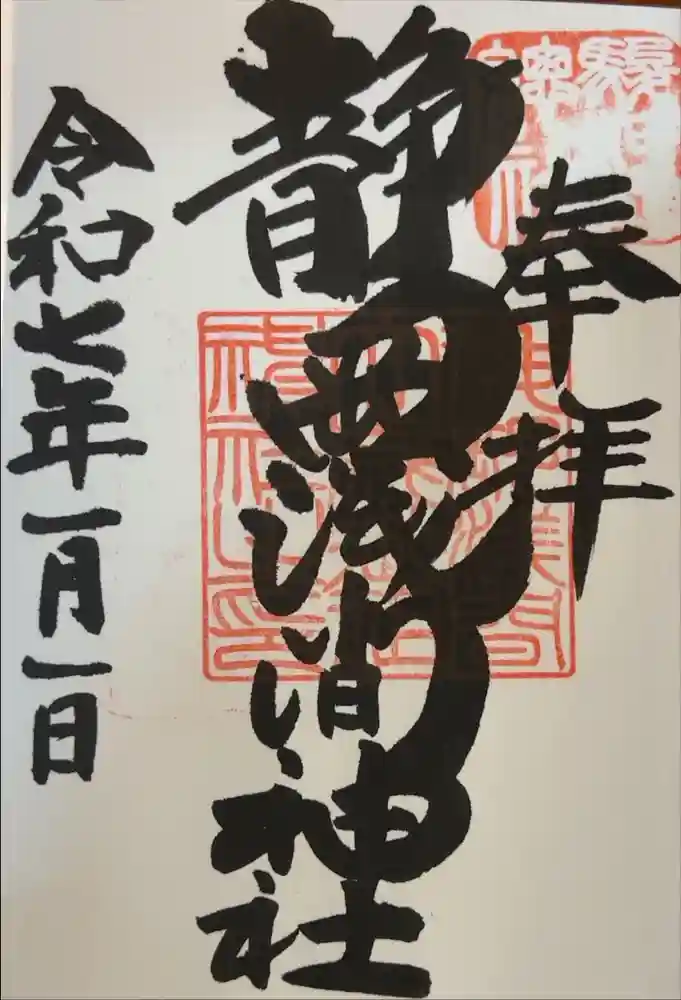 奉拝
静岡浅間神社
令和七年一月一日